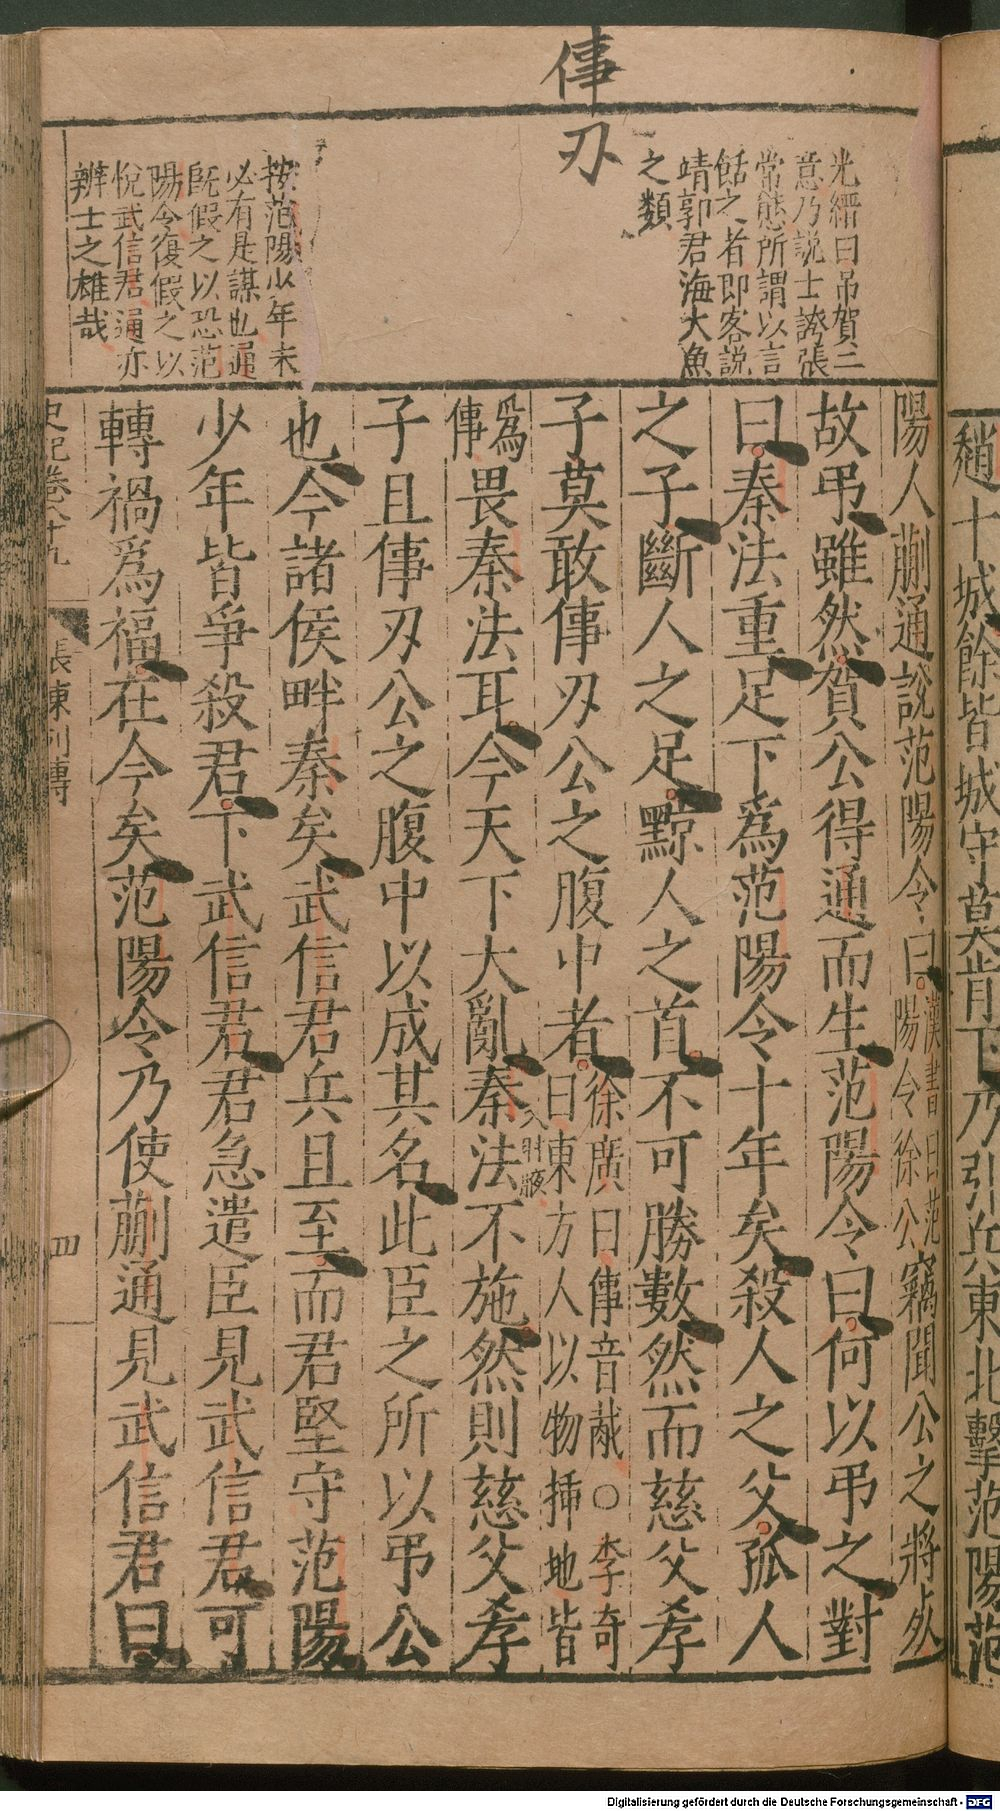 趙十城餘皆城守莫肯下乃引兵東北擊范陽范
陽人蒯通說范陽令曰
漢書曰范
陽令徐公
竊聞公之將死
故弔雖然賀公得通而生范陽令曰何以弔之對
曰秦法重足下爲范陽令十年矣殺人之父孤人
之子斷人之足黥人之首不可勝數然而慈父孝
子莫敢倳刃公之腹中者
徐廣曰倳音胾○李奇
曰東方人以物揷地皆
爲
倳
畏秦法耳今天下大亂秦法不施然則慈父孝
子且倳刃公之腹中以成其名此臣之所以弔公
也今諸侯畔秦矣武信君兵且至而君堅守范陽
少年皆爭殺君下武信君君急遣臣見武信君可
轉禍爲福在今矣范陽令乃使蒯通見武信君曰
光縉曰吊賀二
意乃説士誇張
常態所謂以言
餂之者即客説
靖郭君海大魚
之類
倳
刃
按范陽少年未
必有是謀也通
既假之以恐范
陽令復假之以
悅武信君通亦
辨士之雄哉
史記卷八十九
張陳列傳
四
Digitalisierung gefördert durch die Deutsche Forschungsgemeinschaft - DFG